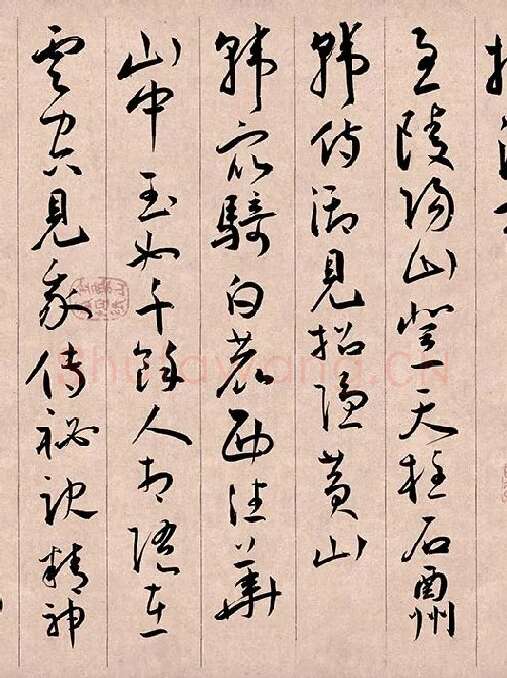 至陵阳山登天柱石酬
韩侍御见招隐黄山
韩众骑白鹿西往华
山中玉女千馀人相随在
云空见我传秘诀精神